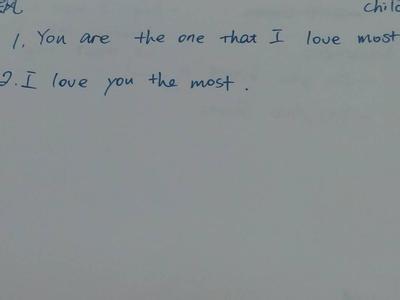 1. You are the one that I love most
2. I love you the most.